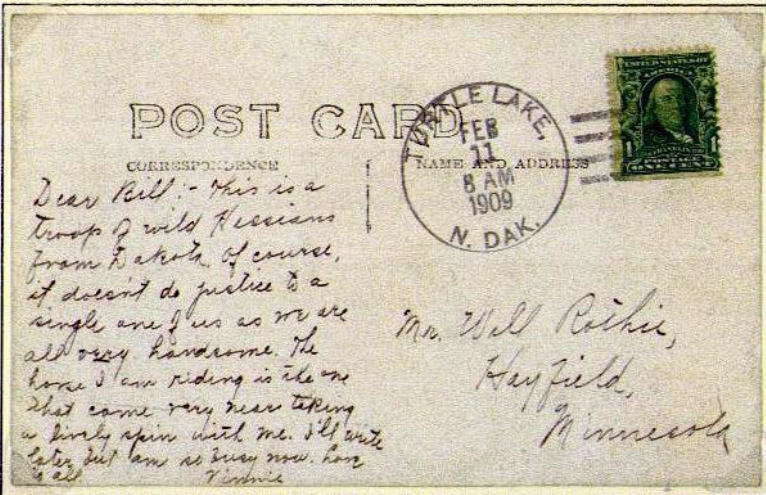 POST CARD
CORRESPONDENCE
NAME AND ADDRESS
TURTLE LAKE,
FEB
11
8 AM
1909
N. DAK.
UNITED STATES OF
AMERICA
1
1
FRANKLIN
POSTAGE
ONE CENT
Dear Bill:- This is a
troop of wild Hessians
from Dakota. Of course,
it doesn't do justice to a
single one of us as we are
all very handsome. The
horse I am riding is the one
that came very near taking
a lively spin with me. I'll write
later but am so busy now. Love
to all Vinnie
Mr. Will Rothie,
Hayfield,
Minnesota